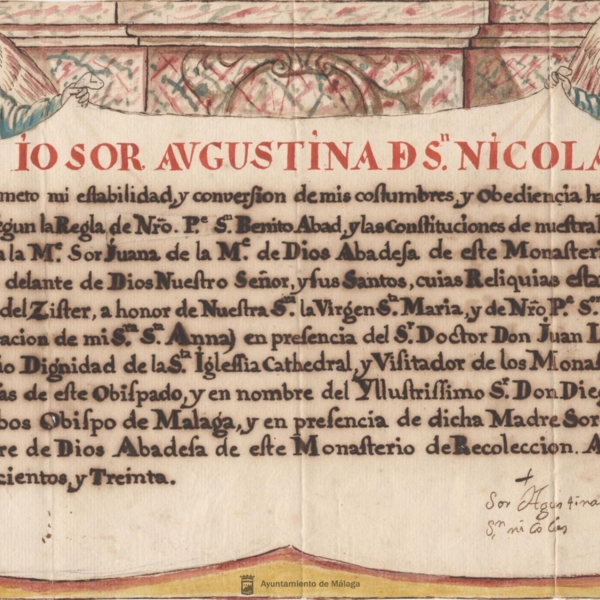 IO SOR AVGUSTINA Đ S.ⁿ NICOLA
meto mi estabilidad, y conversion de mis costumbres, y Obediencia ha
egun la Regla de Nr̃o. P.ᵉ S.ⁿ Benito Abad, y las Constituciones de nuestra
a la M.ᵉ Sor Juana de la M.ᵉ de Dios Abadesa de este Monasteri
delante de Dios Nuestro Señor, y sus Santos, cuias Reliquias esta
del Zister, a honor de Nuestra S.ʳᵃ la Virgen S.ᵗᵃ Maria, y de Nr̃o P.ᵉ S.ⁿ
acion de mi S.ʳᵃ S.ᵗᵃ Anna) en presencia del S.ʳ Doctor Don Juan
io Dignidad de la S.ᵗᵃ Iglessia Cathedral, y Visitador de los Monas
as de este Obispado, y en nombre del Yllustrissimo S.ʳ Don Dieg
bos Obispo de Malaga, y en presencia de dicha Madre Sor
re de Dios Abadesa de este Monasterio de Recoleccion. A
cientos, y Treinta.
Sor Agustina
S.ⁿ nicolas
Ayuntamiento de Málaga